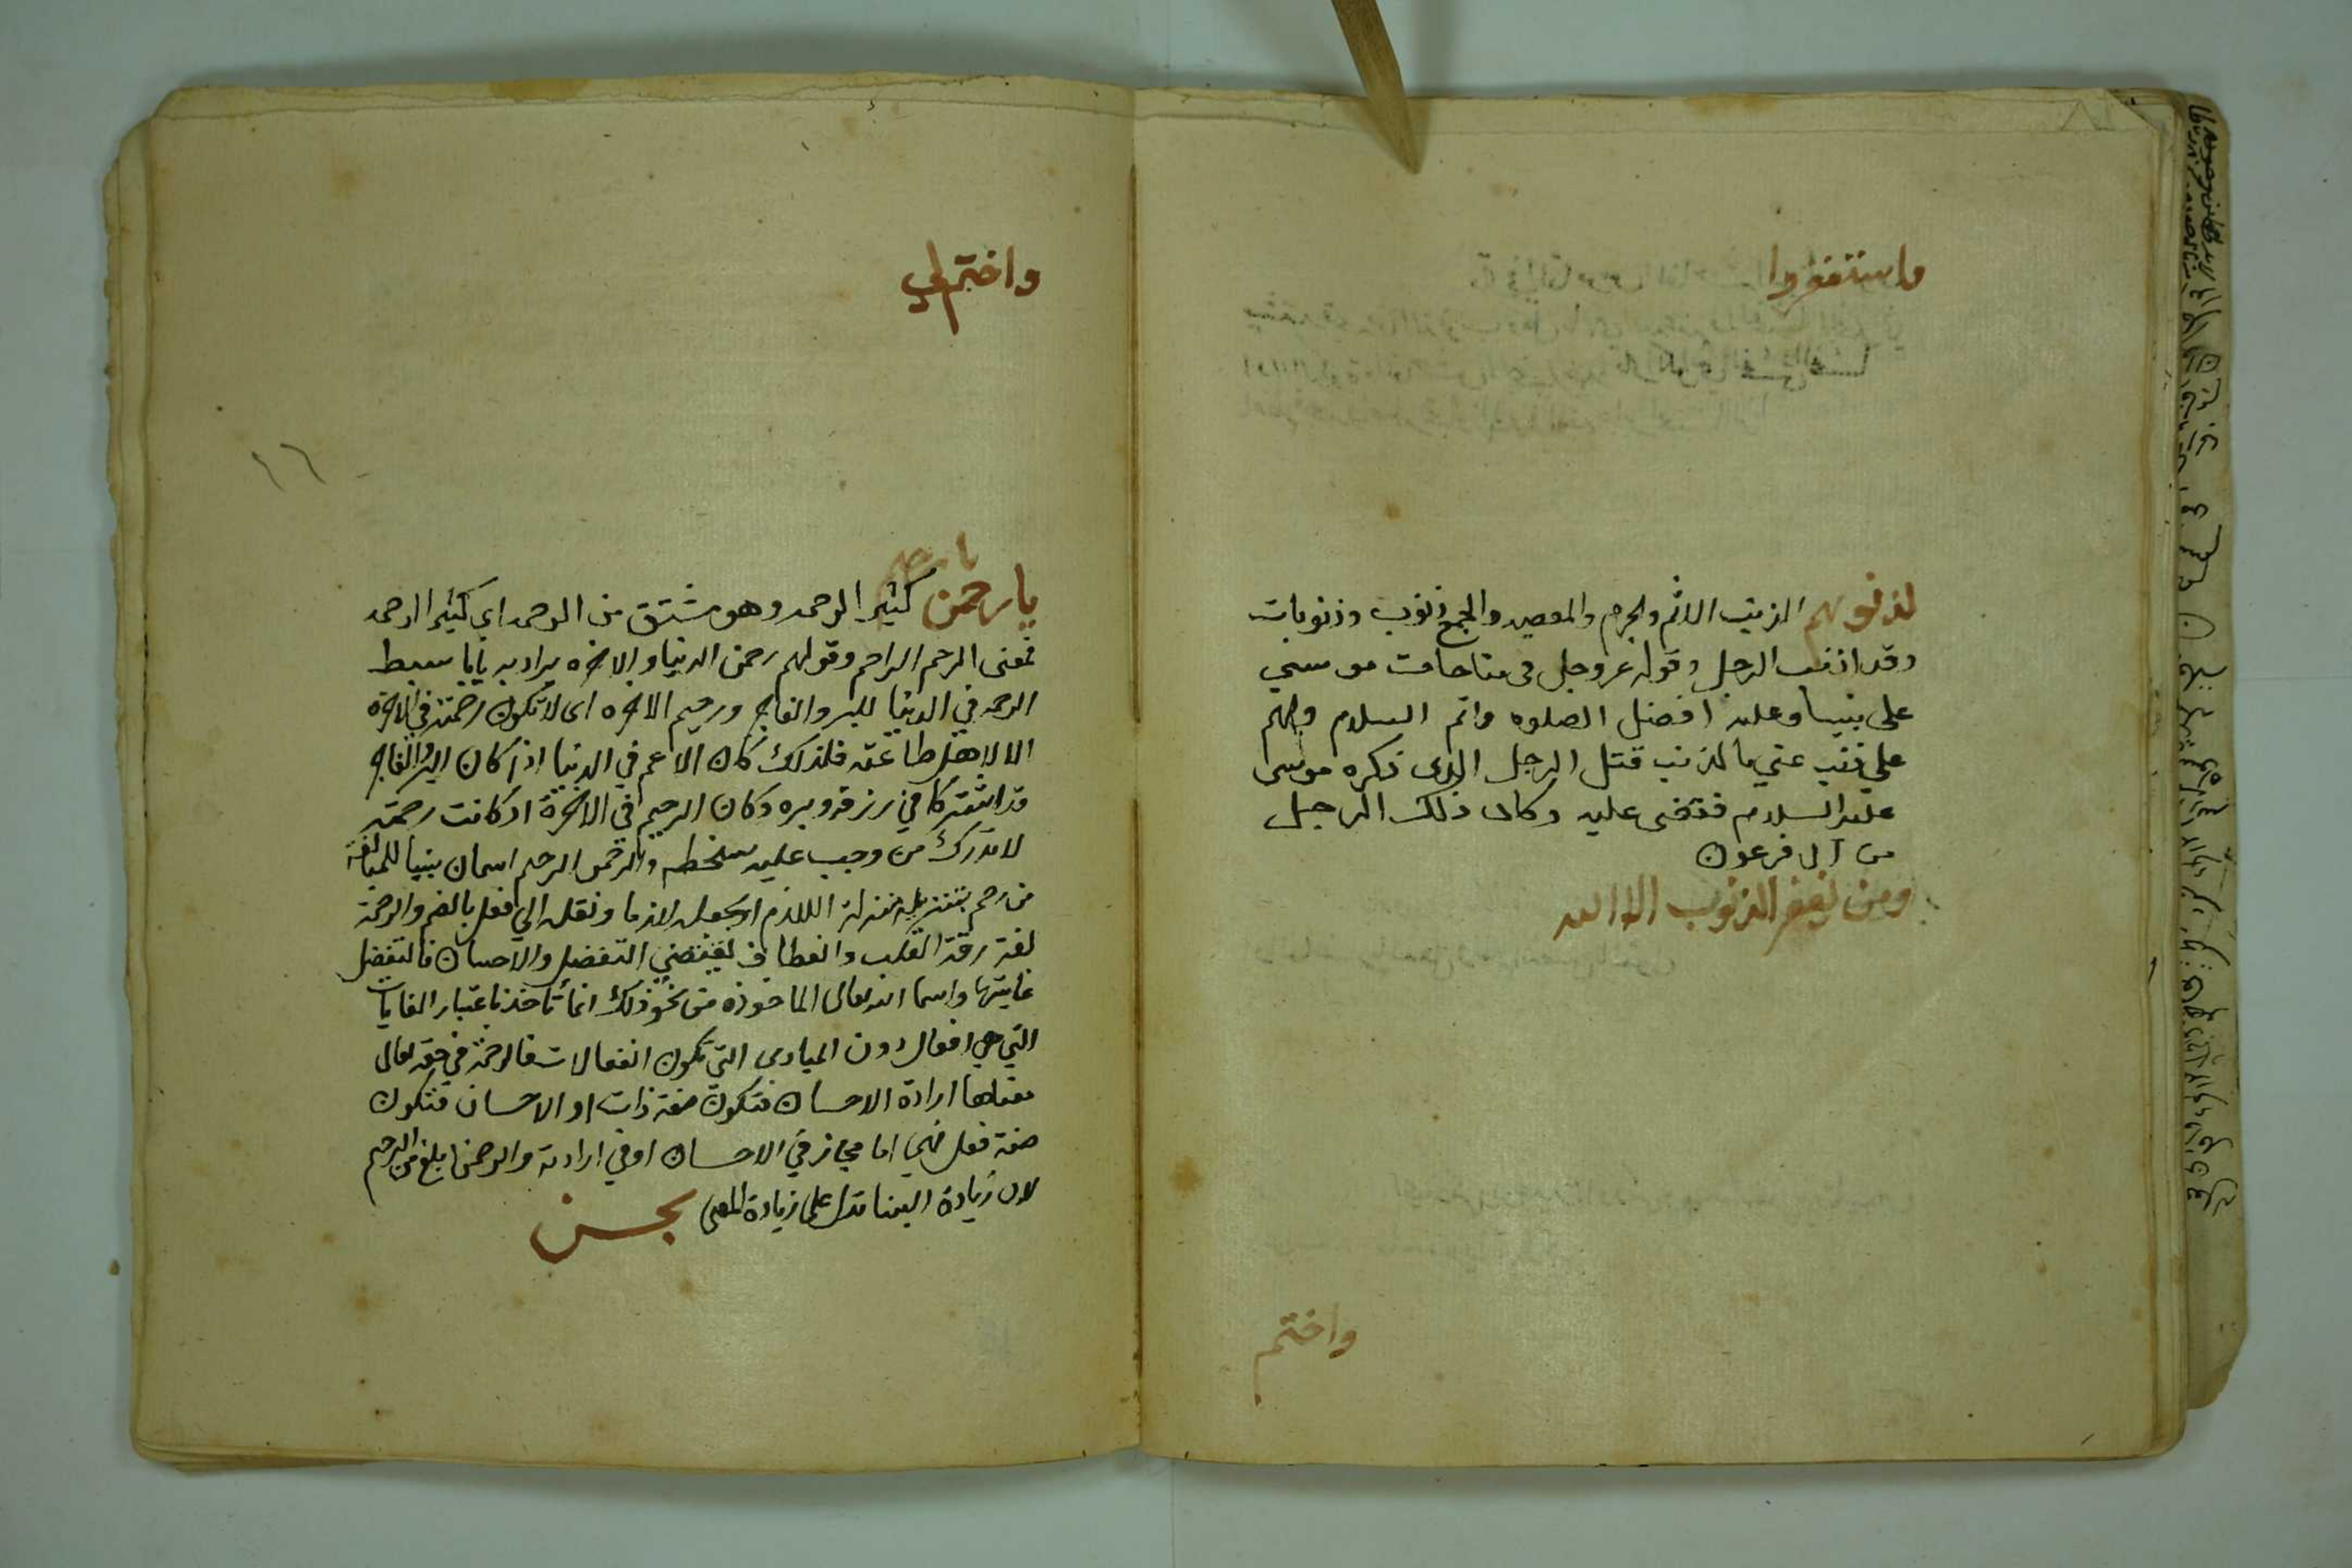 فاستغفروا
لذنوبهم الذنب الاثم والجرم والمعصيه والجمع ذنوب وذنوبات
وقد اذنب الرجل وقوله عز وجل فى مناجات موسي
على نبينا وعليه افضل الصلوه واتم السلام ولهم
علي ذنب عني بالذنب قتل الرجل الذى ذكره موسى
عليه السلام فقضى عليه وكان ذلك الرجل
من آل فرعون
ومن يغفر الذنوب الا الله
واختم
واختم لي
١٦
يا رحيم
يا رحمن كثير الرحمه وهو مشتق من الرحمه اى كثير الرحمه
فمعنى الرحيم الراحم وقولهم رحمن الدنيا والاخره يراد به
الرحمه في الدنيا للبر والفاجر ورحيم الاخره اى لا تكون رحمته في الاخرة
الا لاهل طاعته فلذلك كان الاعم في الدنيا اذ كان البر والفاجر
قد اشتركا في رزقه وبره وكان الرحيم في الاخرة اذ كانت رحمته
لا تدرك من وجب عليه سخطه والرحمن الرحيم اسمان بنيا للمبالغة
من رحم بتنزيله منزلة اللازم او بجعله لازما ونقله الي فعل بالضم والرحمة
لغة رقة القلب وانعطاف يقتضي التفضل والاحسان فالتفضل
غايتها واسما الله تعالى الماخوذه من نحو ذلك انما تاخذ باعتبار الغايات
التي هي افعال دون المبادى التي تكون انفعالات فالرحمة في حقه تعالى
معناها ارادة الاحسان فتكون صفة ذات او الاحسان فتكون
صفة فعل فهي اما مجاز في الاحسان او في ارادته والرحمن ابلغ من الرحيم
لان زيادة البنا تدل على زيادة المعنى بحسن